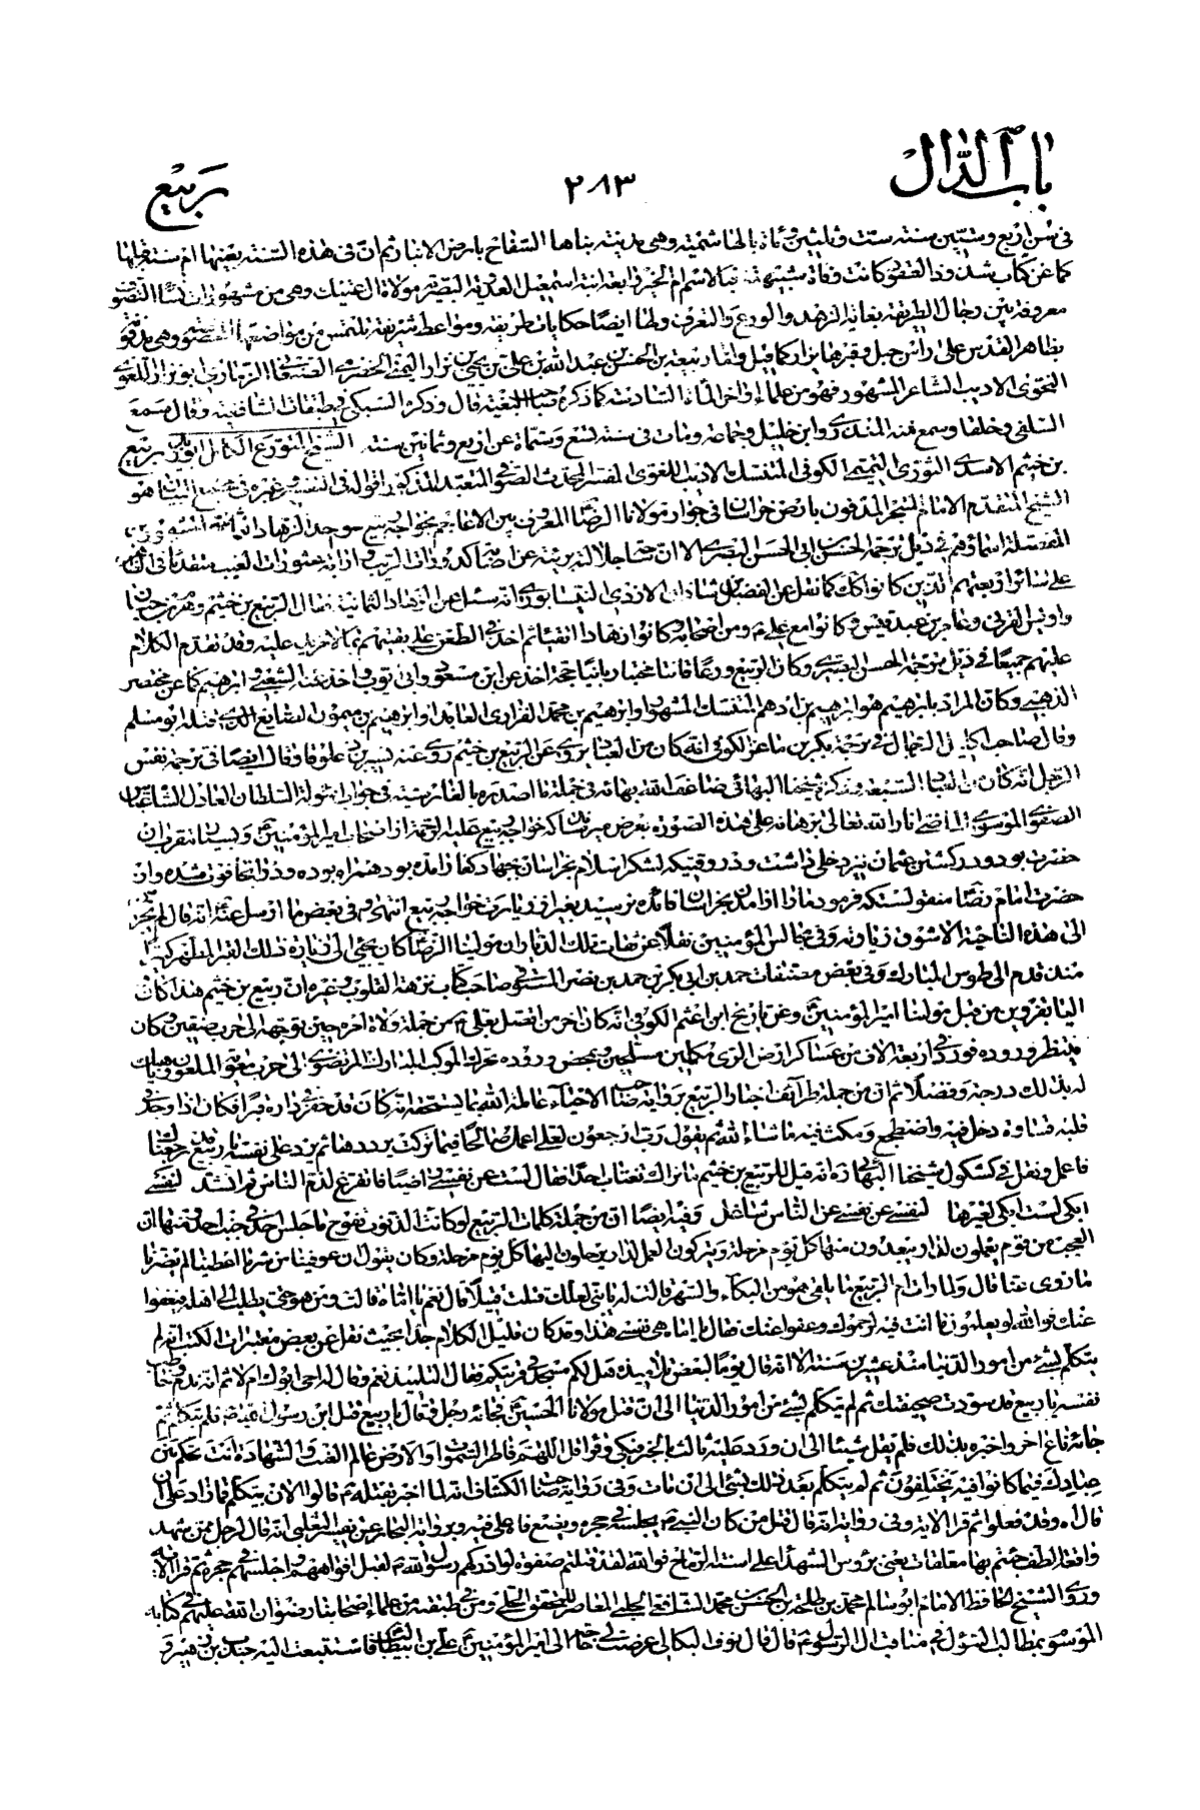 باب الدال
٢٨٣
ربيع
في سن اربع وستين سنة ست وثلثين ومأة بالهاشمية وهي مدينة بناها السفاح بارض الانبار ثم ان في هذه السنة بعينها
كما عن كتاب شذور العقود كانت وفاة اسمعيل العدوية البصرية مولاة ال عتيك وهي من مشهورات
معروفة بين رجال الطريقة بغاية الزهد والورع والتعرف ولها ايضا حكايات طريفة ومواعظ شريفة تلتمس من مواضعها
بظاهر القدس على رأس جبل وقبرها يزار كما قيل واما ربيعة بن الحسن بن عبد الله بن علي بن يحيى بن نزار اليمني الحضرمي ابو نزار اللغوي
النحوي الاديب الشاعر المشهور فهو من علماء اواخر المأة السادسة كما ذكره صاحب البغية قال وذكره السبكي في طبقات الشافعية وقال سمع
السلفي وخلقا وسمع منه المنذري وابن خليل وجماعة ومات في سنة تسع وستمأة عن اربع وثمانين سنة الشيخ المتورع الكامل ربيع
بن خثيم الاسدي الثوري التميمي الكوفي المتنسك الاديب اللغوي المفسر المحدث الصوفي المتعبد المذكور اقواله في التفسير وغيره في مجمع البيان هو
الشيخ المتقدم الامام المتبحر المدفون بارض خراسان في جوار مولانا الرضا المعروف بين الاعاجم بخواجه ربيع هو احد الزهاد الثمانية
المفصلة اسماؤهم في ذيل ترجمة الحسن بن ابي الحسن البصري الا ان
على سائر اربعتهم الذين كانوا كما نقل عن الفضل بن شاذان الازدي النيسابوري انه سئل عن الزهاد الثمانية فقال الربيع بن خثيم وهرم بن حيان
واويس القرني وعامر بن عبد قيس وكانوا مع علي ومن اصحابه وكانوا زهادا اتقياء ثم اخذ في الطعن على بقيتهم بما لا مزيد عليه وقد تقدم الكلام
عليهم جميعا في ذيل ترجمة الحسن البصري وكان الربيع ورعا قانتا مخبتا ربانيا حجة اخذ عن ابن مسعود وابي ايوب واخذ عنه الشعبي وابرهيم كما عن مختصر
الذهبي وكان المراد بابرهيم هو ابرهيم بن ادهم المتنسك المشهور او ابرهيم بن محمد الفزاري العابد او ابرهيم بن ميمون الصايغ الذي قتله ابو مسلم
وقال صاحب اكليل الرجال في ترجمة بكر بن ماعز الكوفي انه كان من العباد يروي عن الربيع بن خثيم روى عنه نسير بن ذعلوق وقال ايضا في ترجمة نفس
الرجل انه كان من العباد السبعة وذكر شيخنا البهائي ضاعف الله بهائه في جملة ما اصدره بالفارسية في جواب اسئولة السلطان العادل الشاه عباس
الصفوي الموسوي الماضي انار الله تعالى برهانه على هذه الصورة بعرض ميرساند كه خواجه ربيع عليه الرحمة از اصحاب امير المؤمنين وبسيار مقرب ان
حضرت بود ودر كشتن عثمان نيز دخلى داشت ودر وقتيكه لشكر اسلام بخراسان بجهاد كفار آمده بود همراه بوده ودر انجا فوت شده واز
حضرت امام رضا منقولستكه فرمود ما را از امدن بخراسان فائده نرسيد بغير از زيارت خواجه ربيع انتهى وفي بعض ما ارسل عنه انه قال لم نجز
الى هذه الناحية الا شوق زيارته وفي مجالس المؤمنين نقلا عن ثقات تلك الديار ان مولينا الرضا كان يجئ الى زيارة ذلك القبر المطهر كثيرا
منذ قدم الى طوس المبارك وفي بعض مصنفات حمد بن ابي بكر بن حمد بن نصر المستوفي صاحب كتاب نزهة القلوب وغيره ان ربيع بن خثيم هذا كان
اليا بقزوين من قبل مولينا امير المؤمنين وعن تاريخ ابن اعثم الكوفي انه كان اخر من اتصل بعلي من جملة ولاة امره حين توجهه الى حرب صفين وكان
ينتظر وروده فورد في اربعة الاف من عساكر ارض الري مكملين مسلحين وبمحض وروده تحرك الموكب المبارك المرتضوي الى حرب معوية الملعون
له بذلك درجة وفضلا ثم ان من جملة طرائف اخبار الربيع برواية صاحب الاحياء عامله الله بما يستحقه انه كان قد حفر في داره قبرا فكان اذا وجد في
قلبه قساوة دخل فيه واضطجع ومكث فيه ما شاء الله ثم يقول رب ارجعون لعلي اعمل صالحا فيما تركت يرددها ثم يرد على نفسه يا ربيع قد رجعناك
فاعمل ونقل في كشكول شيخنا البهائي زاده انه قيل للربيع بن خثيم ما نراك تغتاب احدا فقال لست عن نفسي راضيا فاتفرغ لذم الناس ثم انشد لنفسي
ابكي لست ابكي لغيرها لنفسي عن نفسي عن الناس شاغل وفيه ايضا ان من جملة كلمات الربيع لو كانت الذنوب تفوح ما جلس احد في جنب احد ومنها ان
العجب من قوم يعملون لدار يبعدون منها كل يوم مرحلة ويتركون العمل لدار يرحلون اليها كل يوم مرحلة وكان يقول ان عوفينا من شر ما اعطينا لم يضرنا
ما زوى عنا قال ولما رات ام الربيع ما يلقى هو من البكاء والسهر قالت له يا بني لعلك قتلت قتيلا قال نعم يا اماه قالت ومن هو حتى يطلب الى اهله فيعفوا
عنك فوالله لو يعلمون ما انت فيه لرحموك وعفوا عنك فقال يا اماه هي نفسي هذا وقد كان قليل الكلام جدا بحيث نقل عن بعض معتبرات الكتب انه لم
يتكلم بشئ من امور الدنيا منذ عشرين سنة الا انه قال يوما لبعض تلاميذه هل لكم مسجد في قريتكم فقال التلميذ نعم وقال له احي ابوك ام لا ثم انه ندم وخاطب
نفسه يا ربيع قد سودت صحيفتك ثم لم يتكلم بشئ من امور الدنيا الى ان قتل مولانا الحسين فجائه رجل فقال يا ربيع قتل ابن رسول الله فلم يتكلم ثم
جائه ناع اخر واخبره بذلك فلم يقل شيئا الى ان ورد عليه ثالث بالخبر فبكى وقرأ قل اللهم فاطر السموات والارض عالم الغيب والشهادة انت تحكم بين
عبادك فيما كانوا فيه يختلفون ثم لم يتكلم بعد ذلك بشئ الى ان مات وفي رواية صاحب الكشاف انه لما اخبر بقتله قالوا الان يتكلم فما زاد على ان
قال اه وقد فعلوا ثم قرأ الاية وفي رواية انه قال قتل من كان النبي يجلسه في حجره ويضع فاه على فيه وبرواية البحار عن تفسير الثعلبي انه قال لرجل ممن شهد
واقعة الطف جئتم بها معلقات يعني برؤس الشهدا على اسنة الرماح فوالله لقد قتلتم صفوة لو ادركهم رسول الله لقبل افواههم واجلسهم في حجره ثم قرأ الاية
وروى الشيخ الحافظ الامام ابو سالم محمد بن طلحة بن الحسن بن محمد الشافعي الحلبي المعاصر للمحقق الحلي ومن في طبقته من علماء اصحابنا رضوان الله عليهم في كتابه
الموسوم بمطالب السئول في مناقب ال الرسول قال قال نوف البكالي عرضت لي حاجة الى امير المؤمنين علي بن ابي طالب فاستتبعت اليه جندب بن زهير و